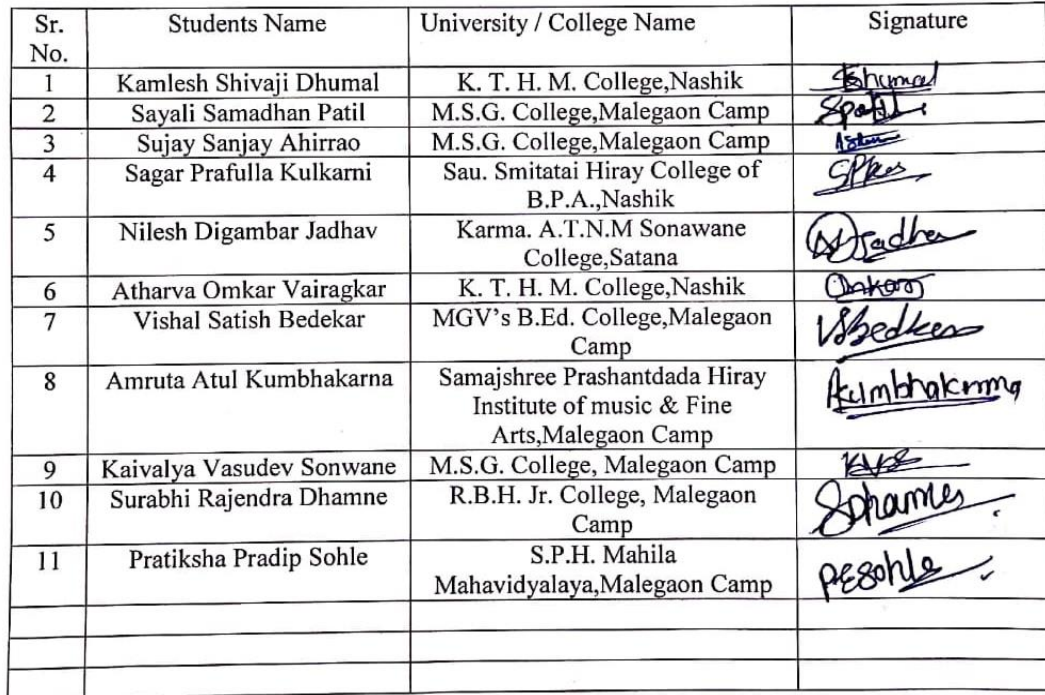 Sr. Students Name University / College Name Signature
No.
1 Kamlesh Shivaji Dhumal K. T. H. M. College,Nashik Dhumal
2 Sayali Samadhan Patil M.S.G. College,Malegaon Camp Spatil
3 Sujay Sanjay Ahirrao M.S.G. College,Malegaon Camp
4 Sagar Prafulla Kulkarni Sau. Smitatai Hiray College of
B.P.A.,Nashik
5 Nilesh Digambar Jadhav Karma. A.T.N.M Sonawane
College,Satana
6 Atharva Omkar Vairagkar K. T. H. M. College,Nashik Omkar
7 Vishal Satish Bedekar MGV's B.Ed. College,Malegaon
Camp
8 Amruta Atul Kumbhakarna Samajshree Prashantdada Hiray
Institute of music & Fine
Arts,Malegaon Camp
9 Kaivalya Vasudev Sonwane M.S.G. College, Malegaon Camp KVS
10 Surabhi Rajendra Dhamne R.B.H. Jr. College, Malegaon
Camp
11 Pratiksha Pradip Sohle S.P.H. Mahila
Mahavidyalaya,Malegaon Camp